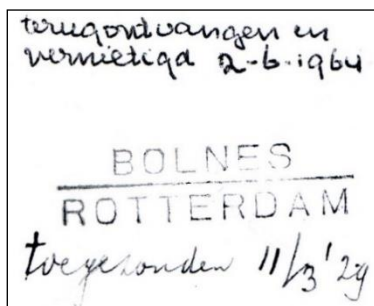 terugontvangen en
vernietigd 2-6-1964
BOLNES
ROTTERDAM
toegezonden 11/3 '29